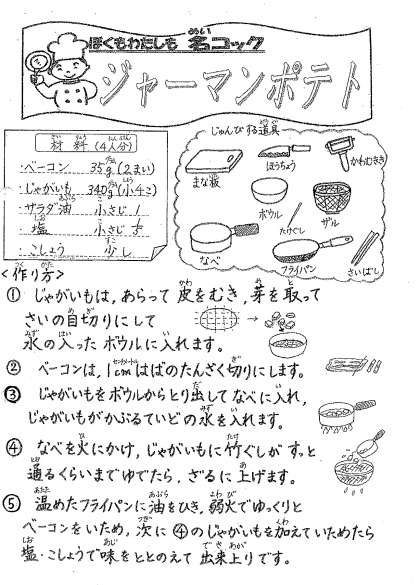 ぼくもわたしも 名コック
ジャーマンポテト
材料 (4人分)
・ベーコン 35g (2まい)
・じゃがいも 340g (小4こ)
・サラダ油 小さじ1
・塩 小さじ
・こしょう 少し
じゅんびする道具
まな板
ほうちょう
かわむき
ボウル
ザル
なべ
たけぐし
フライパン
さいばし
<作り方>
① じゃがいもは、あらって 皮をむき、芽を取って
さいの目切りにして
水の入った ボウルに入れます。
② ベーコンは、1cmはばのたんざく切りにします。
③ じゃがいもをボウルからとり出して なべに入れ、
じゃがいもがかぶるていどの 水を入れます。
④ なべを火にかけ、じゃがいもに竹ぐしが すっと
通るくらいまでゆでたら、ざるに 上げます。
⑤ 温めたフライパンに油をひき、弱火でゆっくりと
ベーコンをいため、次に ④のじゃがいもを加えていためたら
塩・こしょうで味をととのえて 出来上りです。